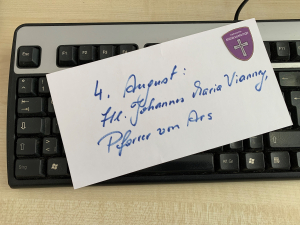 4. August:
Hl. Johannes Maria Vianney,
Pfarrer von Ars